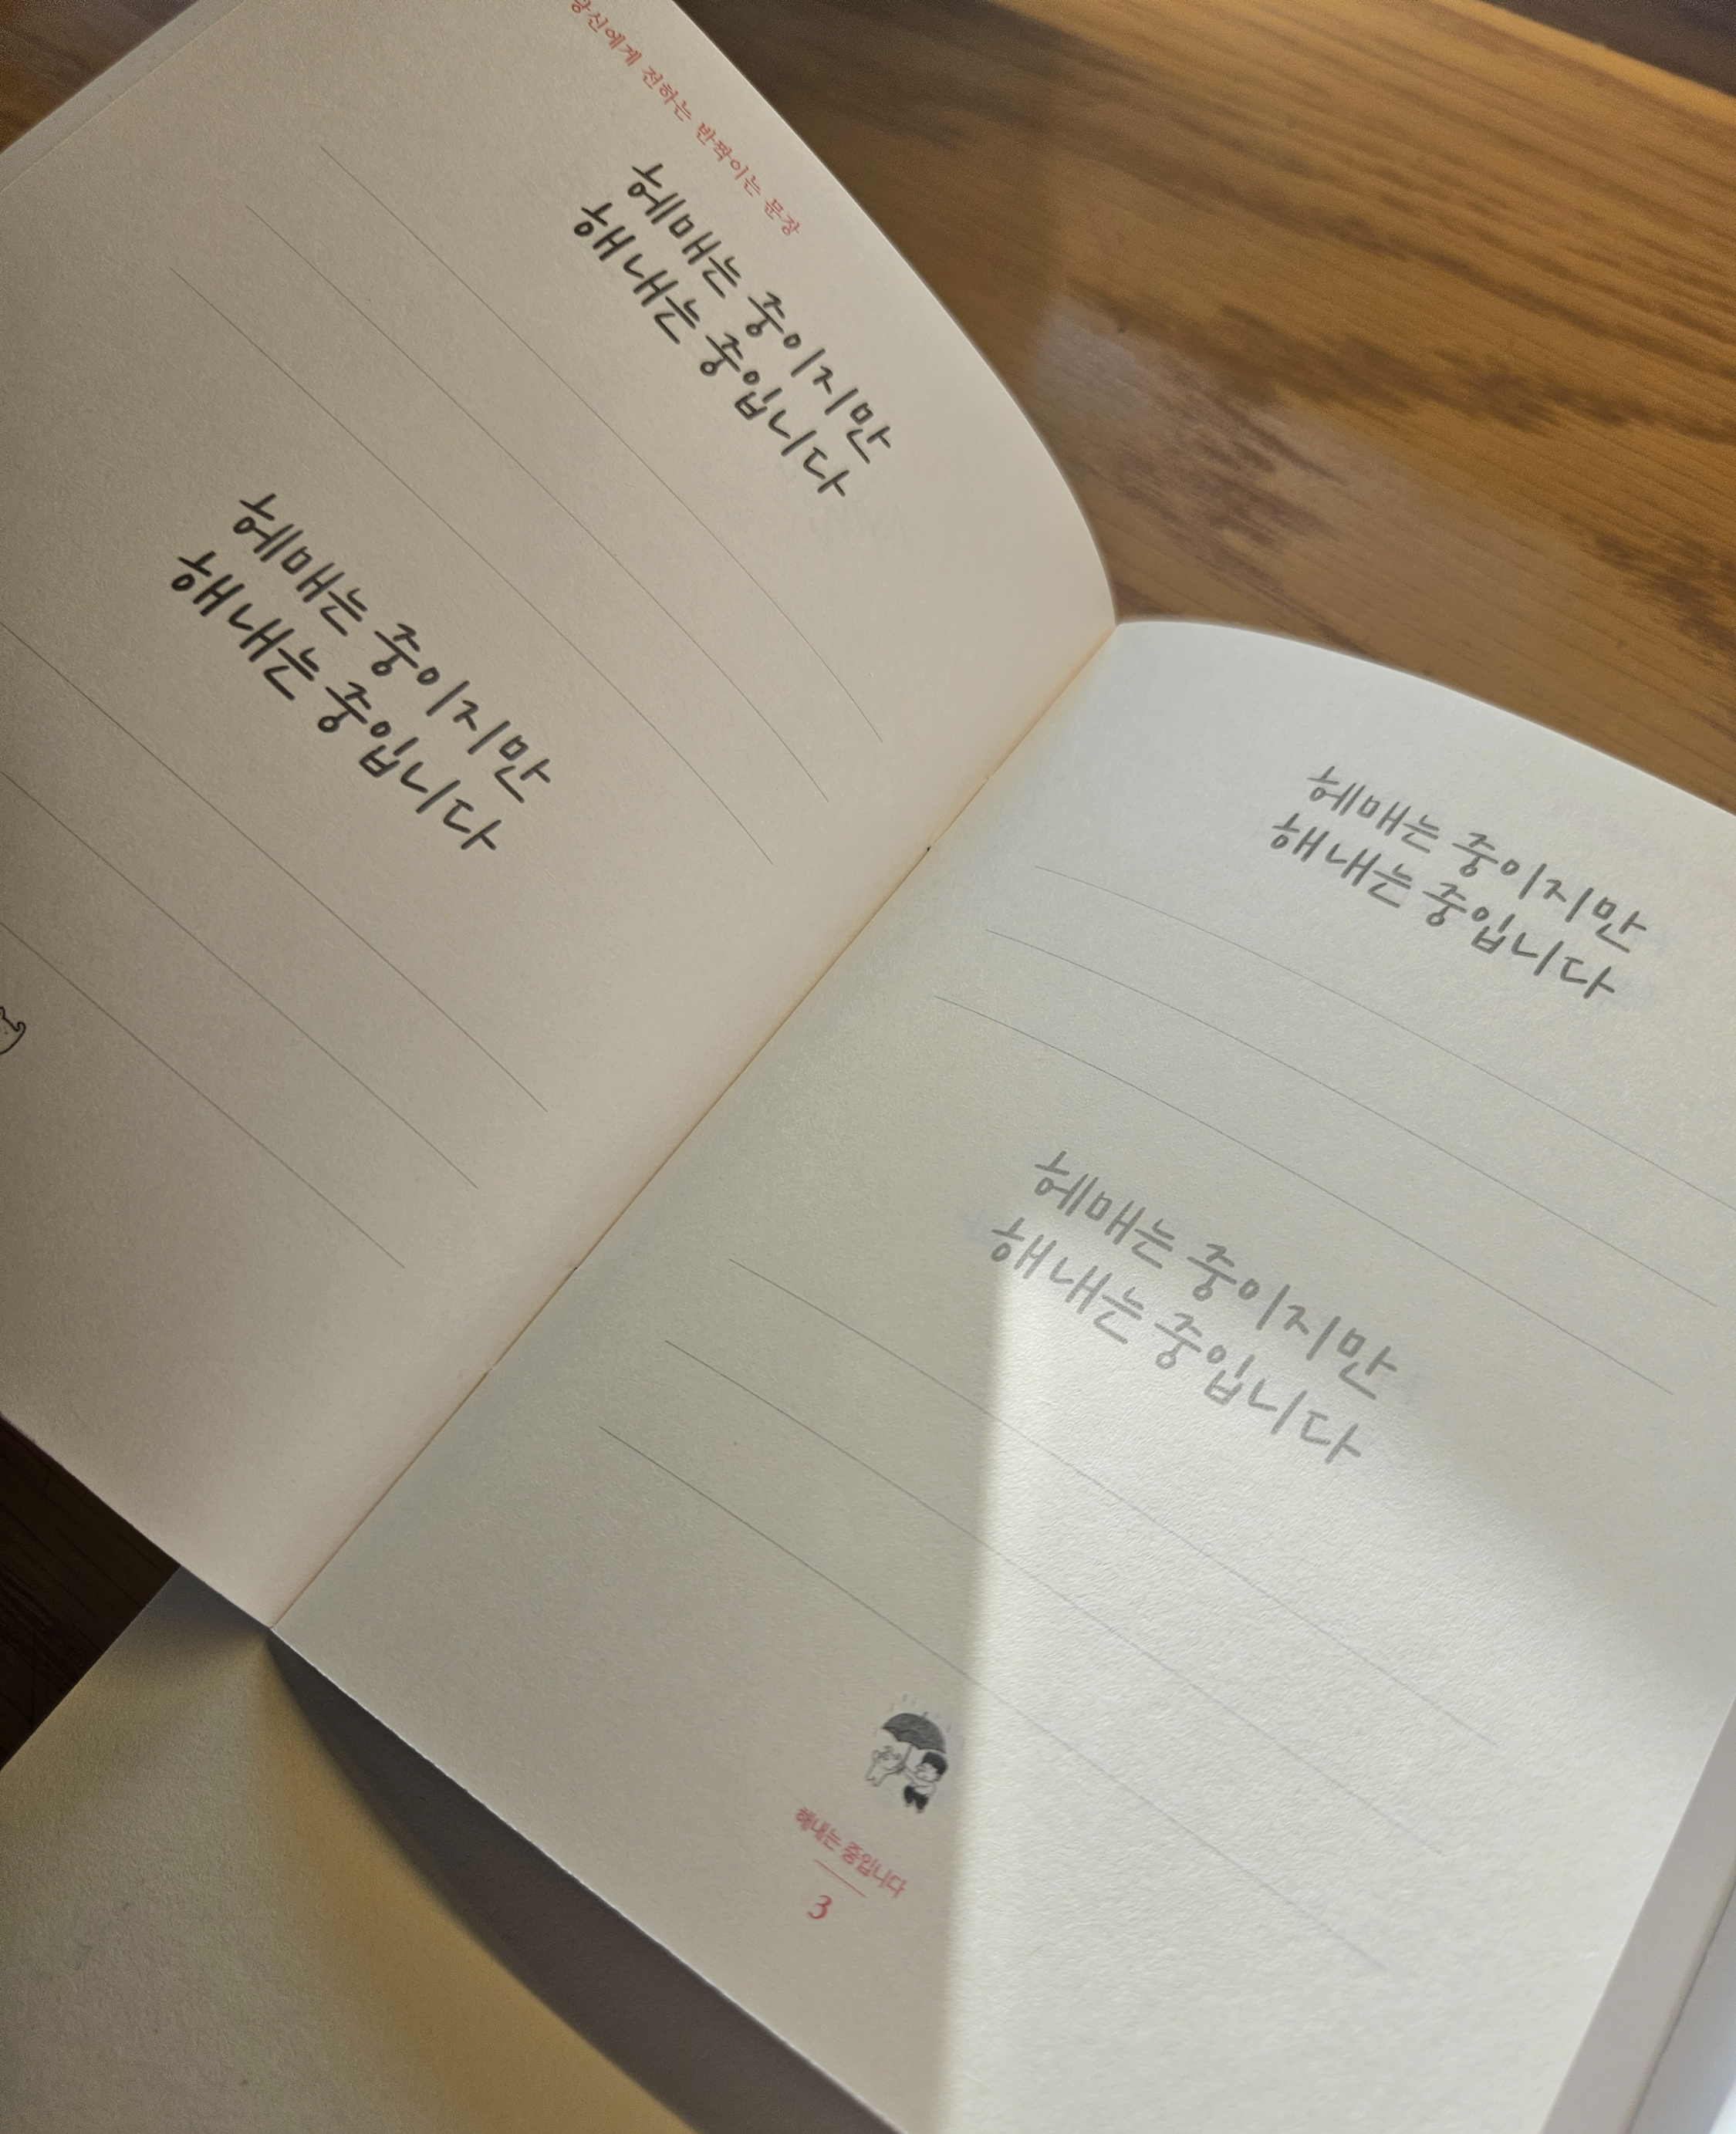 당신에게 전하는 반짝이는 문장
헤매는 중이지만
해내는 중입니다
헤매는 중이지만
해내는 중입니다
헤매는 중이지만
해내는 중입니다
헤매는 중이지만
해내는 중입니다
해내는 중입니다
3